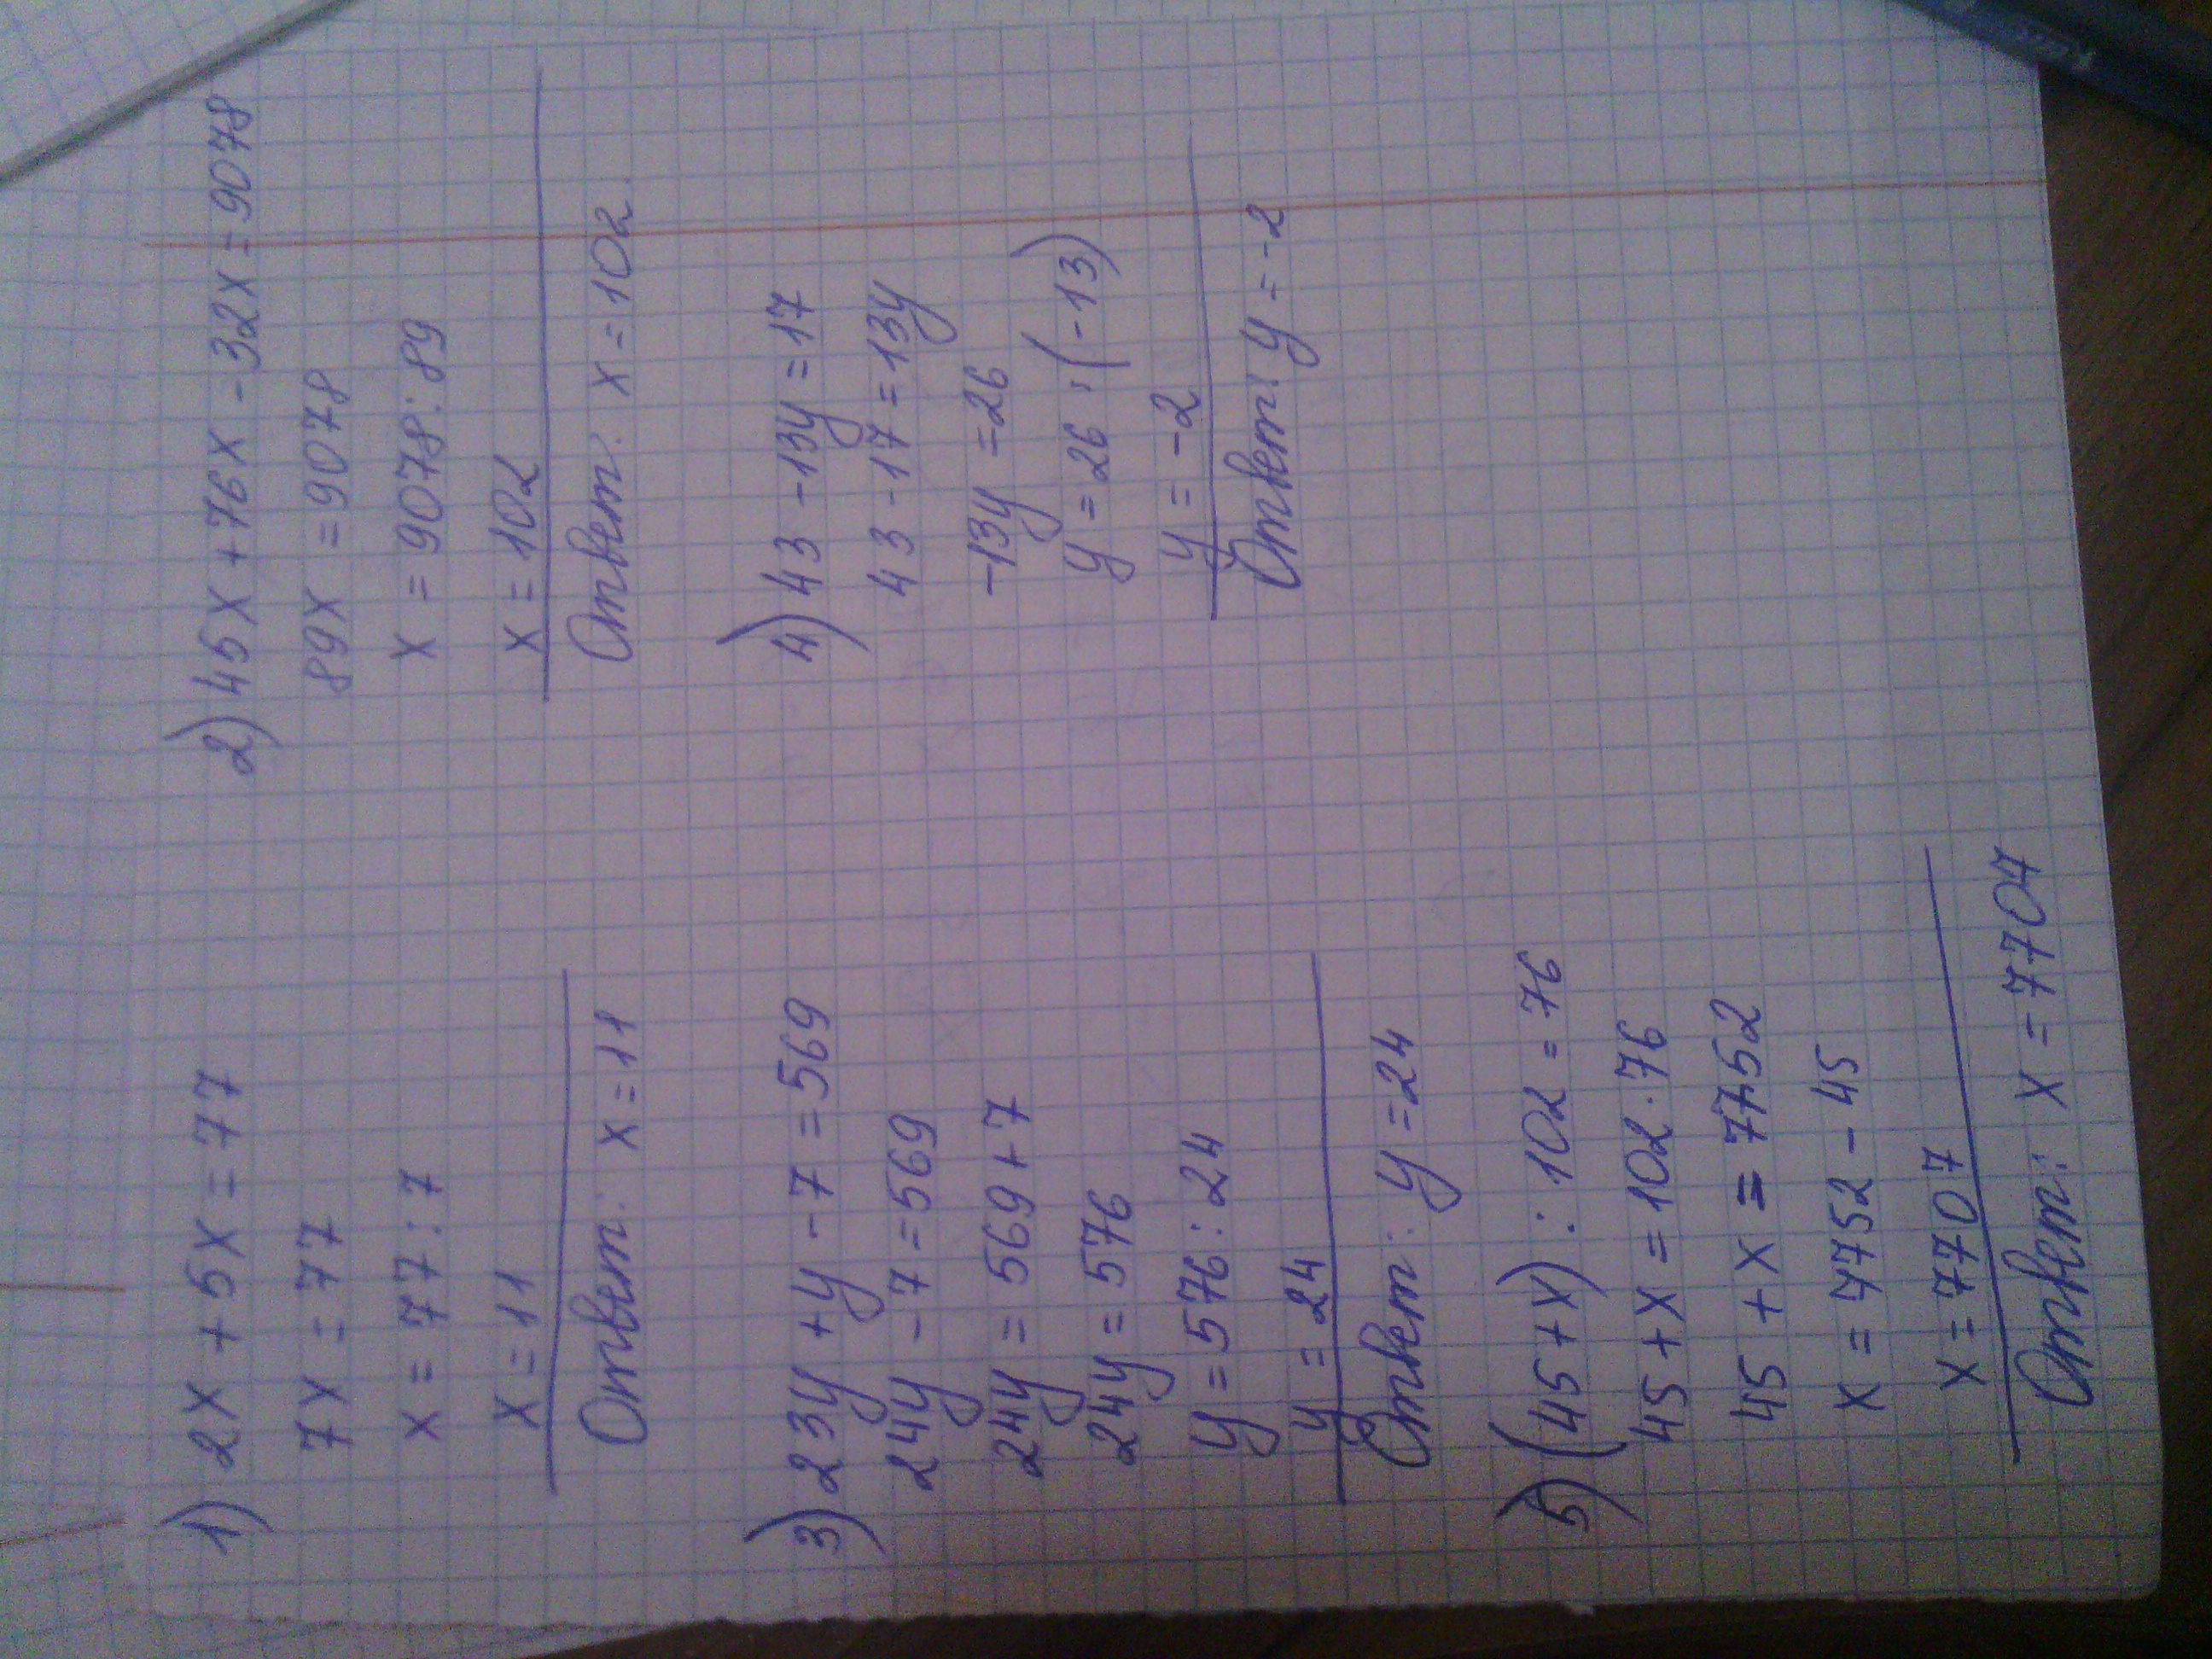 1) 2x + 5x = 77
7x = 77
x = 77 : 7
x = 11
Ответ: x = 11
2) 45x + 76x - 32x = 9078
89x = 9078
x = 9078 : 89
x = 102
Ответ: x = 102.
3) 23y + y - 7 = 569
24y - 7 = 569
24y = 569 + 7
24y = 576
y = 576 : 24
y = 24
Ответ: y = 24
4) 43 - 13y = 17
43 - 17 = 13y
-13y = 26
y = 26 : (-13)
y = -2
Ответ: y = -2
5) (45 + x) : 102 = 76
45 + x = 102 · 76
45 + x = 7752
x = 7752 - 45
x = 7707
Ответ: x = 7704